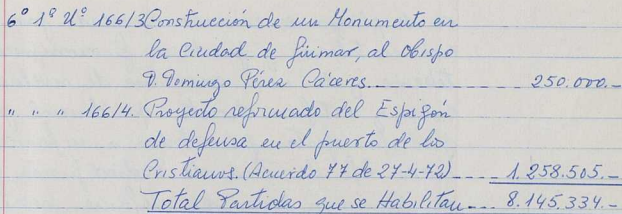 6º 1º Uº 166/3 Construcción de un Monumento en
la Ciudad de Güimar, al Obispo
D. Domingo Pérez Cáceres............ 250.000.-
" " " 166/4. Proyecto reformado del Espigón
de defensa en el puerto de los
Cristianos. (Acuerdo 77 de 27-4-72)---- 1.258.505.-
Total Partidas que se Habilitan--- 8.145.334.-